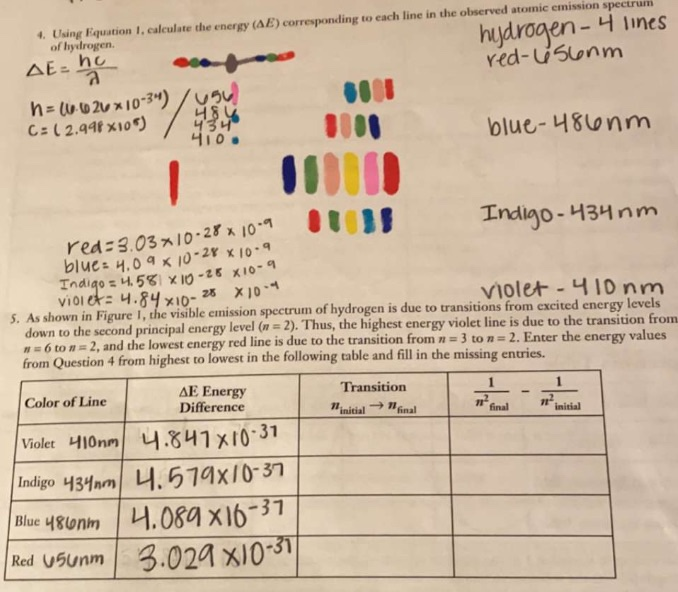 4. Using Equation 1, calculate the energy (ΔE) corresponding to each line in the observed atomic emission spectrum
of hydrogen.
hydrogen - 4 lines
red - 656nm
ΔE = hc/λ
h = (6.626 × 10-34)
c = (2.998 × 108)
656
486
434
410
blue - 486nm
Indigo - 434nm
red = 3.03 × 10-28 × 10-9
blue = 4.09 × 10-28 × 10-9
Indigo = 4.581 × 10-28 × 10-9
violet = 4.84 × 10-28 × 10-9
violet - 410 nm
5. As shown in Figure 1, the visible emission spectrum of hydrogen is due to transitions from excited energy levels
down to the second principal energy level (n = 2). Thus, the highest energy violet line is due to the transition from
n = 6 to n = 2, and the lowest energy red line is due to the transition from n = 3 to n = 2. Enter the energy values
from Question 4 from highest to lowest in the following table and fill in the missing entries.
Color of Line
ΔE Energy
Difference
Transition
n initial → n final
1/n² final − 1/n² initial
Violet 410nm 4.847 × 10-37
Indigo 434nm 4.579 × 10-37
Blue 486nm 4.089 × 10-37
Red 656nm 3.029 × 10-37